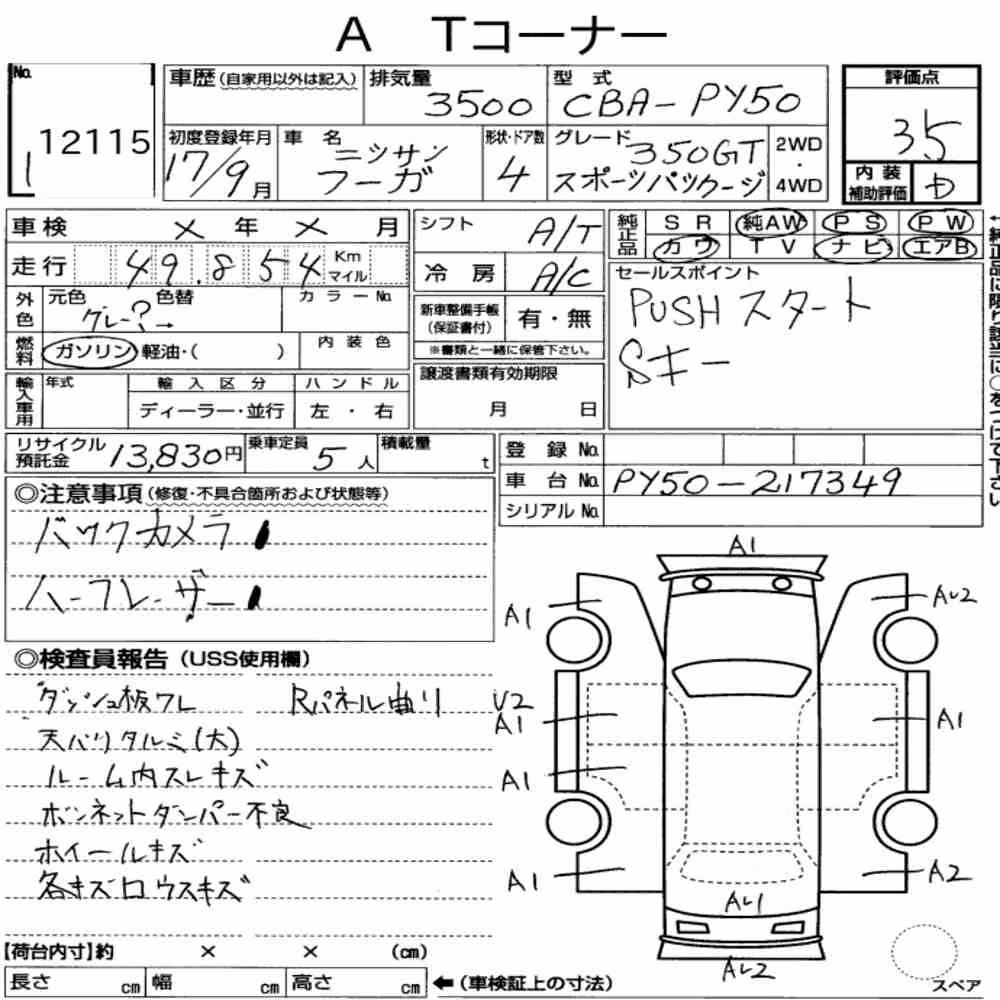 A Tコーナー
No. 1 12115
車歴(自家用以外は記入)
排気量 3500
型式 CBA-PY50
評価点 3.5
初度登録年月 17/9月
車名 ニッサン フーガ
形状・ドア数 4
グレード 350GT スポーツパッケージ
2WD・4WD
内装補助評価 D
車検 × 年 × 月
シフト A/T
純正品 SR 純AW PS PW
カワ TV ナビ エアB
走行 49.854 Km マイル
冷房 A/C
セールスポイント
PUSHスタート
Sキー
外色 元色 グレー?→ 色替 カラーNo.
新車整備手帳(保証書付) 有・無
※書類と一緒に保管下さい。
燃料 ガソリン 軽油・( ) 内装色
譲渡書類有効期限 月 日
輸入車用 年式 輸入区分 ハンドル
ディーラー・並行 左・右
リサイクル預託金 13,830円
乗車定員 5人
積載量 t
登録No.
車台No. PY50-217349
シリアルNo.
←純正品に限り該当に○をつけて下さい
◎注意事項(修復・不具合箇所および状態等)
バックカメラ
ハーフレーザー
◎検査員報告(USS使用欄)
ダッシュ板ワレ Rパネル曲り
天バリタルミ(大)
ルーム内スレキズ
ボンネットダンパー不良
ホイールキズ
各キズロウスキズ
A1
A1 AU2
U2
A1 A1
A1
A1 A2
AU1
AU2
スペア
【荷台内寸】約 × × (cm)
長さ cm 幅 cm 高さ cm ←(車検証上の寸法)